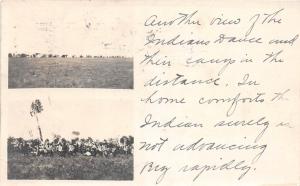 Another view of the
Indians Dance and
their camp in the
distance. In
home comforts the
Indian surely is
not advancing
very rapidly.